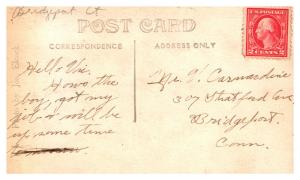 (Bridgeport Ct
POST CARD
CORRESPONDENCE
ADDRESS ONLY
U.S. POSTAGE
2 CENTS 2
Hello Vic.
Hows the
boy, got my
will be
up some time
Mr. V. Carnaschire
307 Stratford Ave
Bridgeport.
Conn.